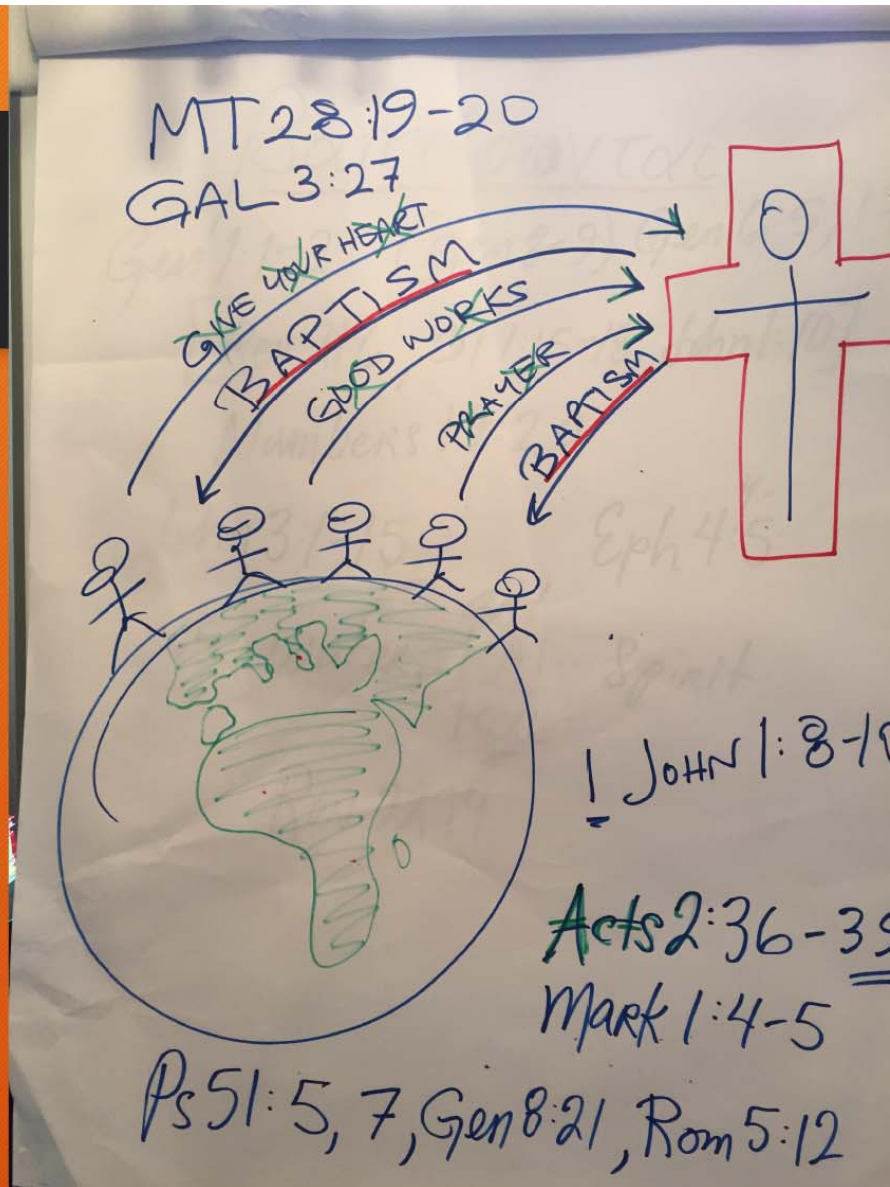 MT 28:19-20
GAL 3:27
GIVE YOUR HEART
BAPTISM
GOOD WORKS
PRAYER
BAPTISM
Eph 4
Spirit
1 JOHN 1:8-1
Acts 2:36-39
Mark 1:4-5
Ps 51:5, 7, Gen 8:21, Rom 5:12